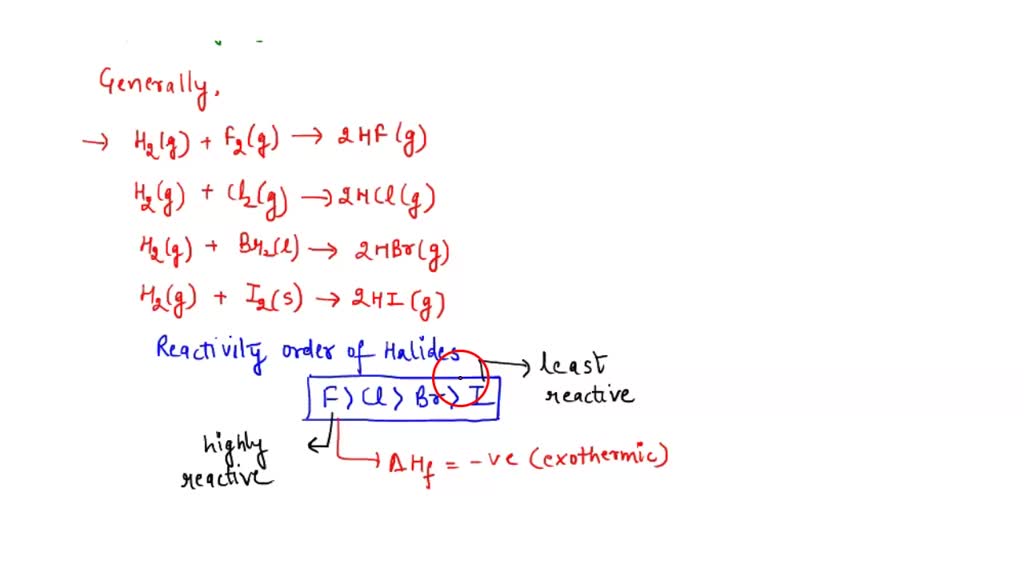 Generally,
→ H₂(g) + F₂(g) → 2HF(g)
H₂(g) + Cl₂(g) → 2HCl(g)
H₂(g) + Br₂(l) → 2HBr(g)
H₂(g) + I₂(s) → 2HI(g)
Reactivity order of Halides
F > Cl > Br > I
→ least
reactive
highly
reactive
→ ΔHf = -ve (exothermic)